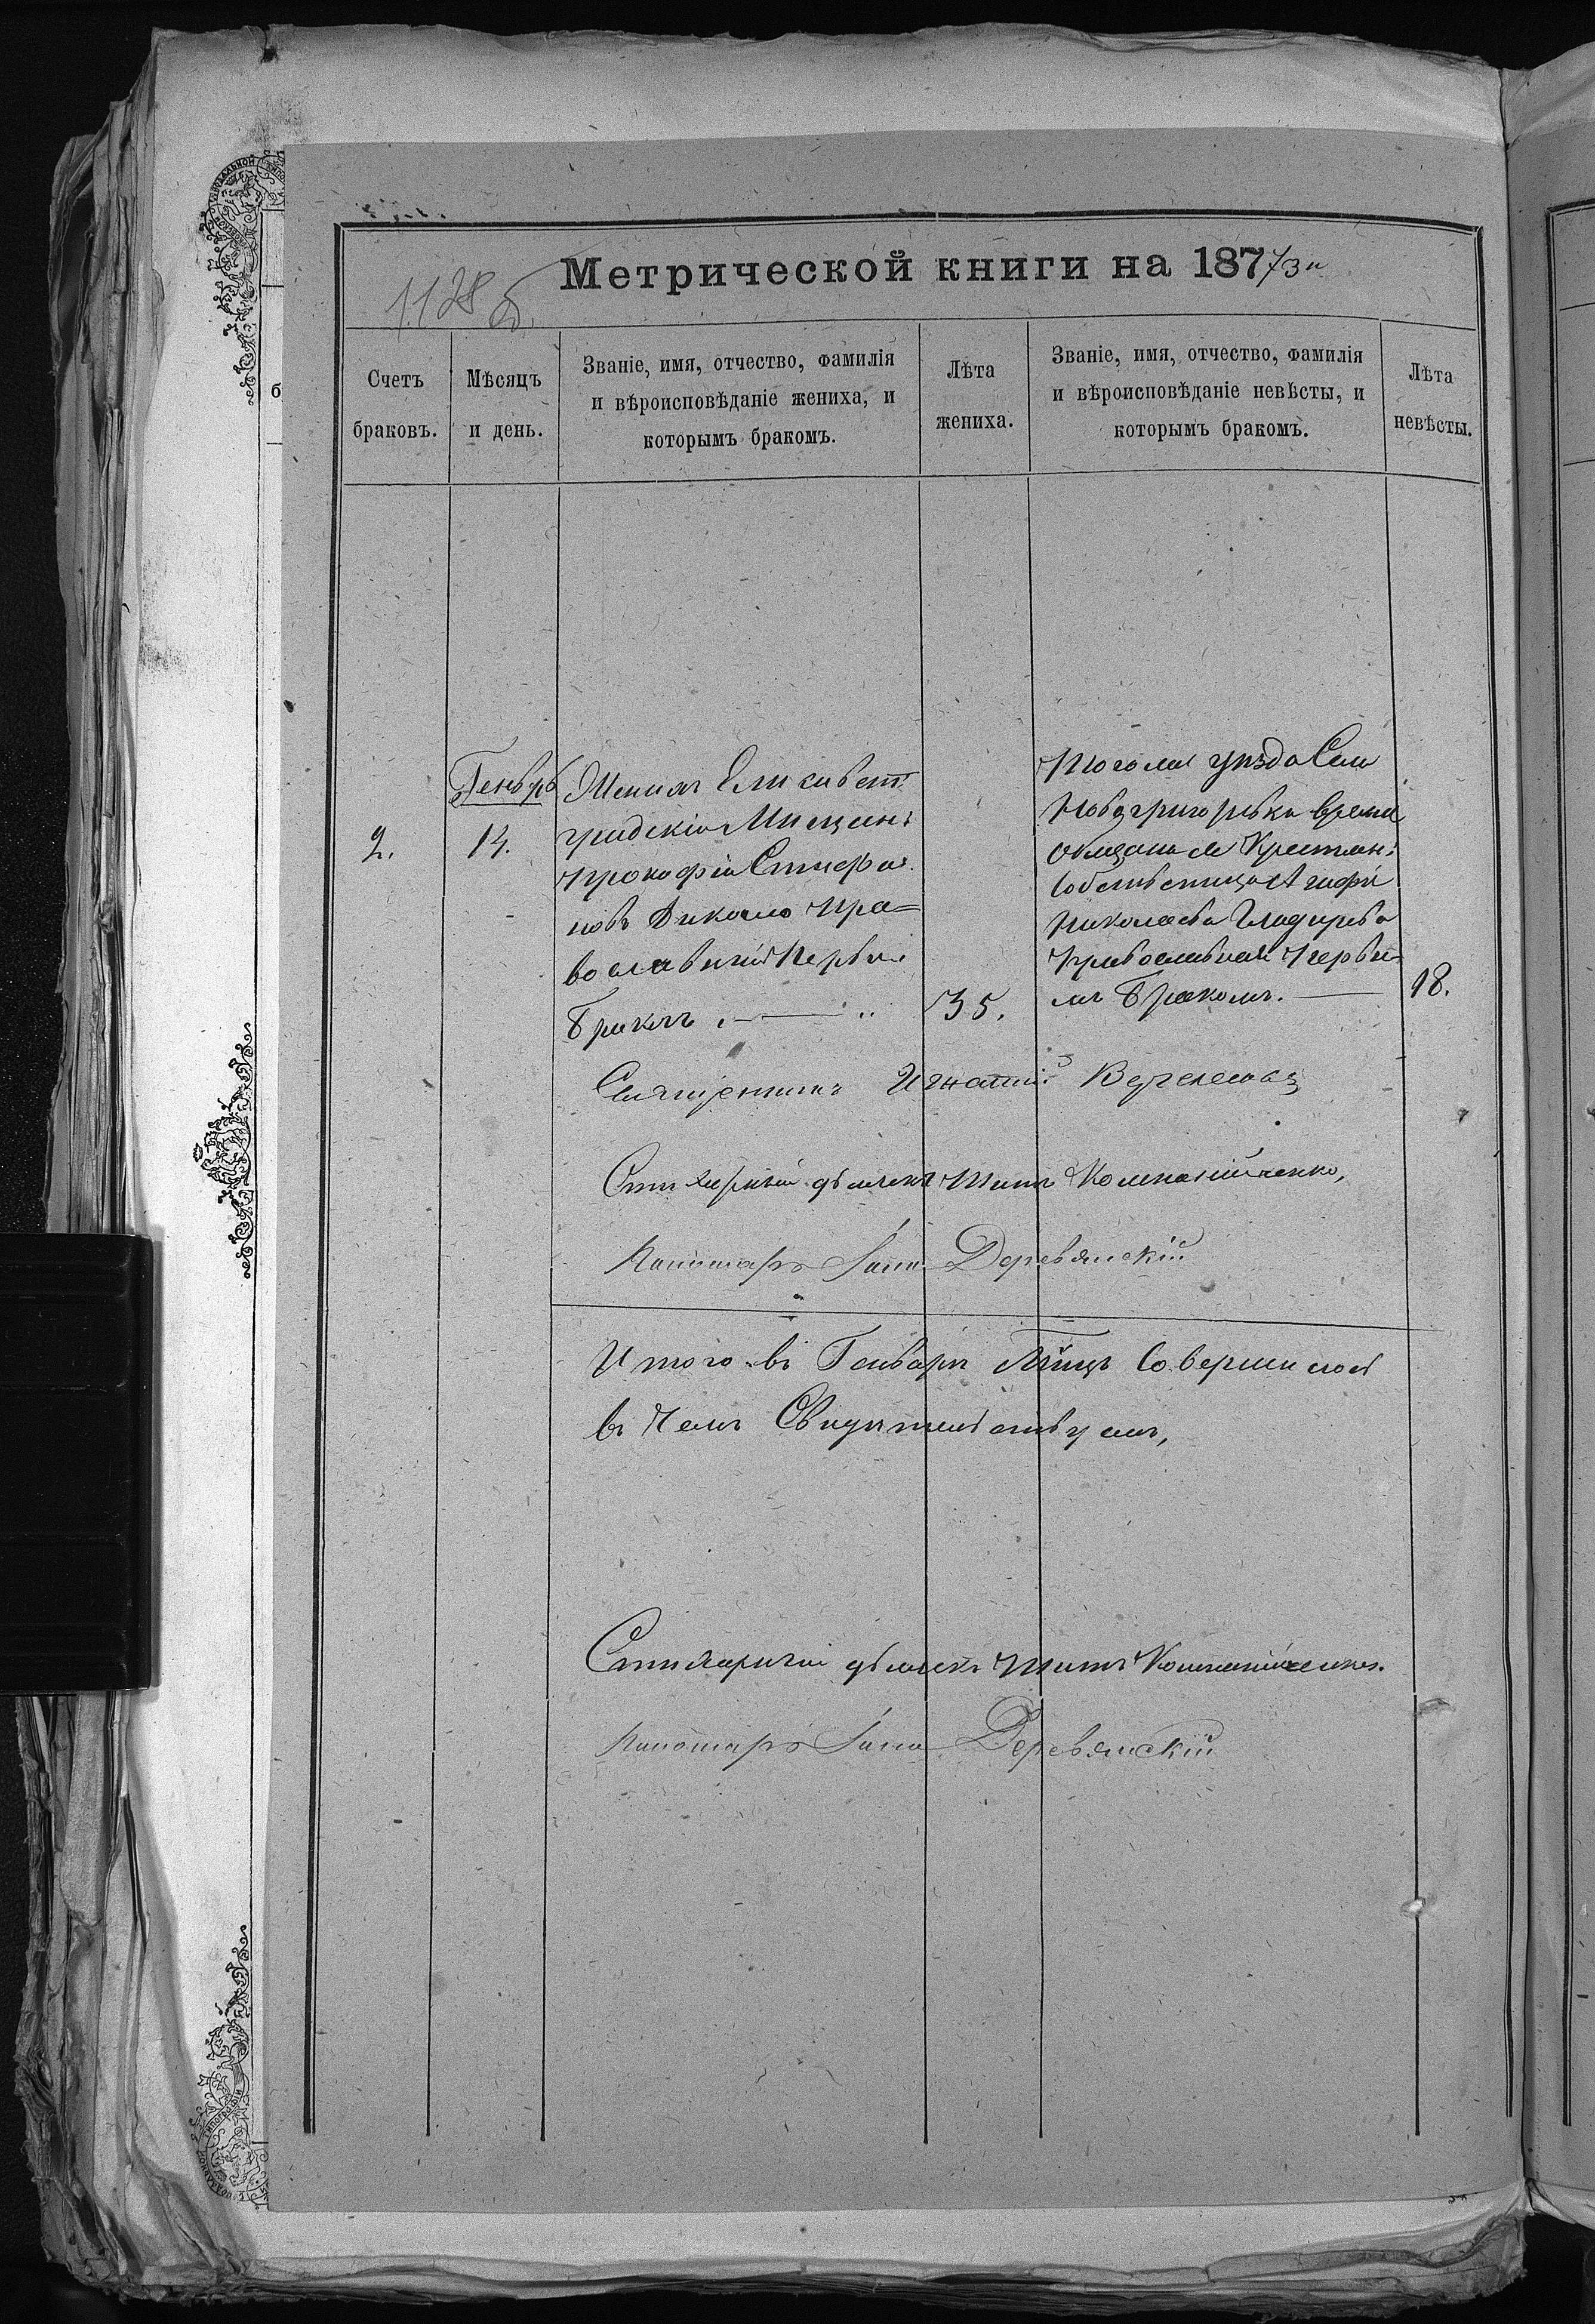 1128 б.
Метрической книги на 187
Счетъ браковъ.
Мѣсяцъ и день.
Званіе, имя, отчество, фамилія и вѣроисповѣданіе жениха, и которымъ бракомъ.
Лѣта жениха.
Званіе, имя, отчество, фамилія и вѣроисповѣданіе невѣсты, и которымъ бракомъ.
Лѣта невѣсты.
2.
Генврь
14.
Женихъ Елисавет
градскій Мещанин
Прокофій Стефа
новъ Дикало Пра=
вославный Первы
Бракомъ
35.
того же уезда Села
Новогригоревки време
обязана
собственица Агафія
Николаева
православная Первы
мъ Бракомъ.
18.
Священникъ Игнатій
Стихарный дьячекъ Титъ Компанійченко,
Пономарь Деревянскій
Итого въ Генваре Мцѣ Совершилось
въ Чемъ Свидетельствуемъ,
Стихарный дьячекъ Титъ Компанійченко.
Пономарь Деревянскій